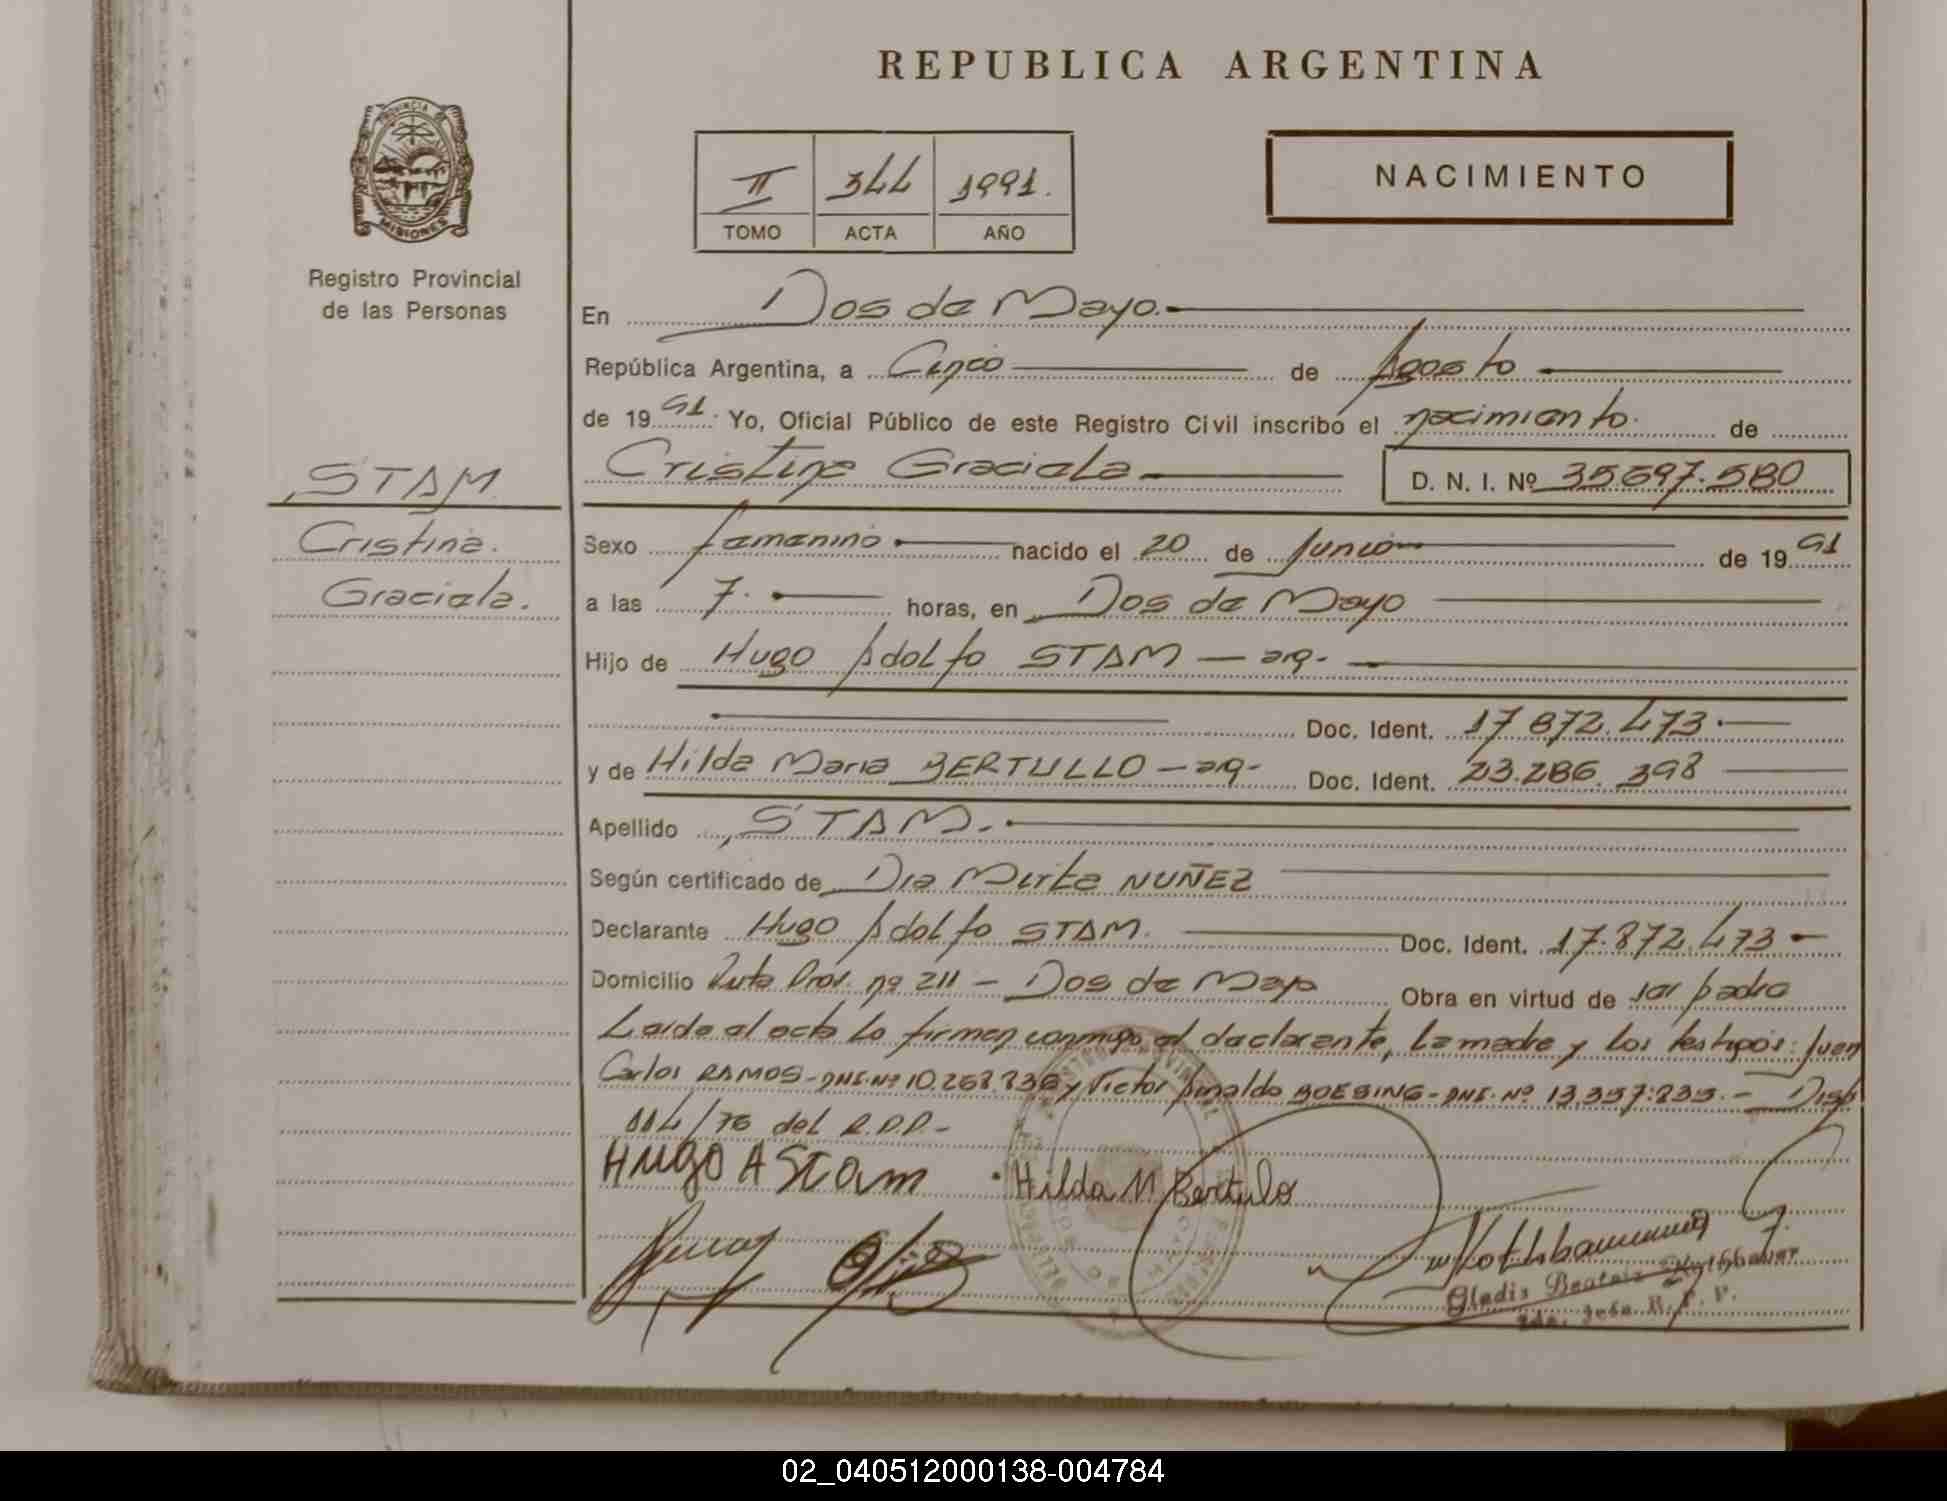 REPUBLICA ARGENTINA
NACIMIENTO
II 344 1991.
TOMO ACTA AÑO
PROVINCIA DE
MISIONES
Registro Provincial
de las Personas
En Dos de Mayo.
República Argentina, a Cinco de Agosto
de 1991. Yo, Oficial Público de este Registro Civil inscribo el nacimiento. de
Cristina Graciela D. N. I. Nº 35.697.580
STAM
Cristina.
Graciela.
Sexo femenino nacido el 20 de Junio de 1991
a las 7. horas, en Dos de Mayo
Hijo de Hugo Adolfo STAM — arg-
Doc. Ident. 17.872.473.
y de Hilda Maria BERTULLO — arg- Doc. Ident. 23.286.398
Apellido STAM.-
Según certificado de Dra Mirta NUÑEZ
Declarante Hugo Adolfo STAM. Doc. Ident. 17.872.473
Domicilio Ruta Prov. nº 211 - Dos de Mayo Obra en virtud de ser padre
Leída el acta la firman conmigo el declarante, la madre y los testigos: Juan
Carlos RAMOS-DNI.Nº 10.268.838 y Victor Reinaldo BOESING-DNI.Nº 13.357.235.- Disp
114/76 del R.P.P.-
Hugo A Stam Hilda M Bertulo
Gladis Beatriz Kothbauer
2da. Jefa R. P. P.
02_040512000138-004784